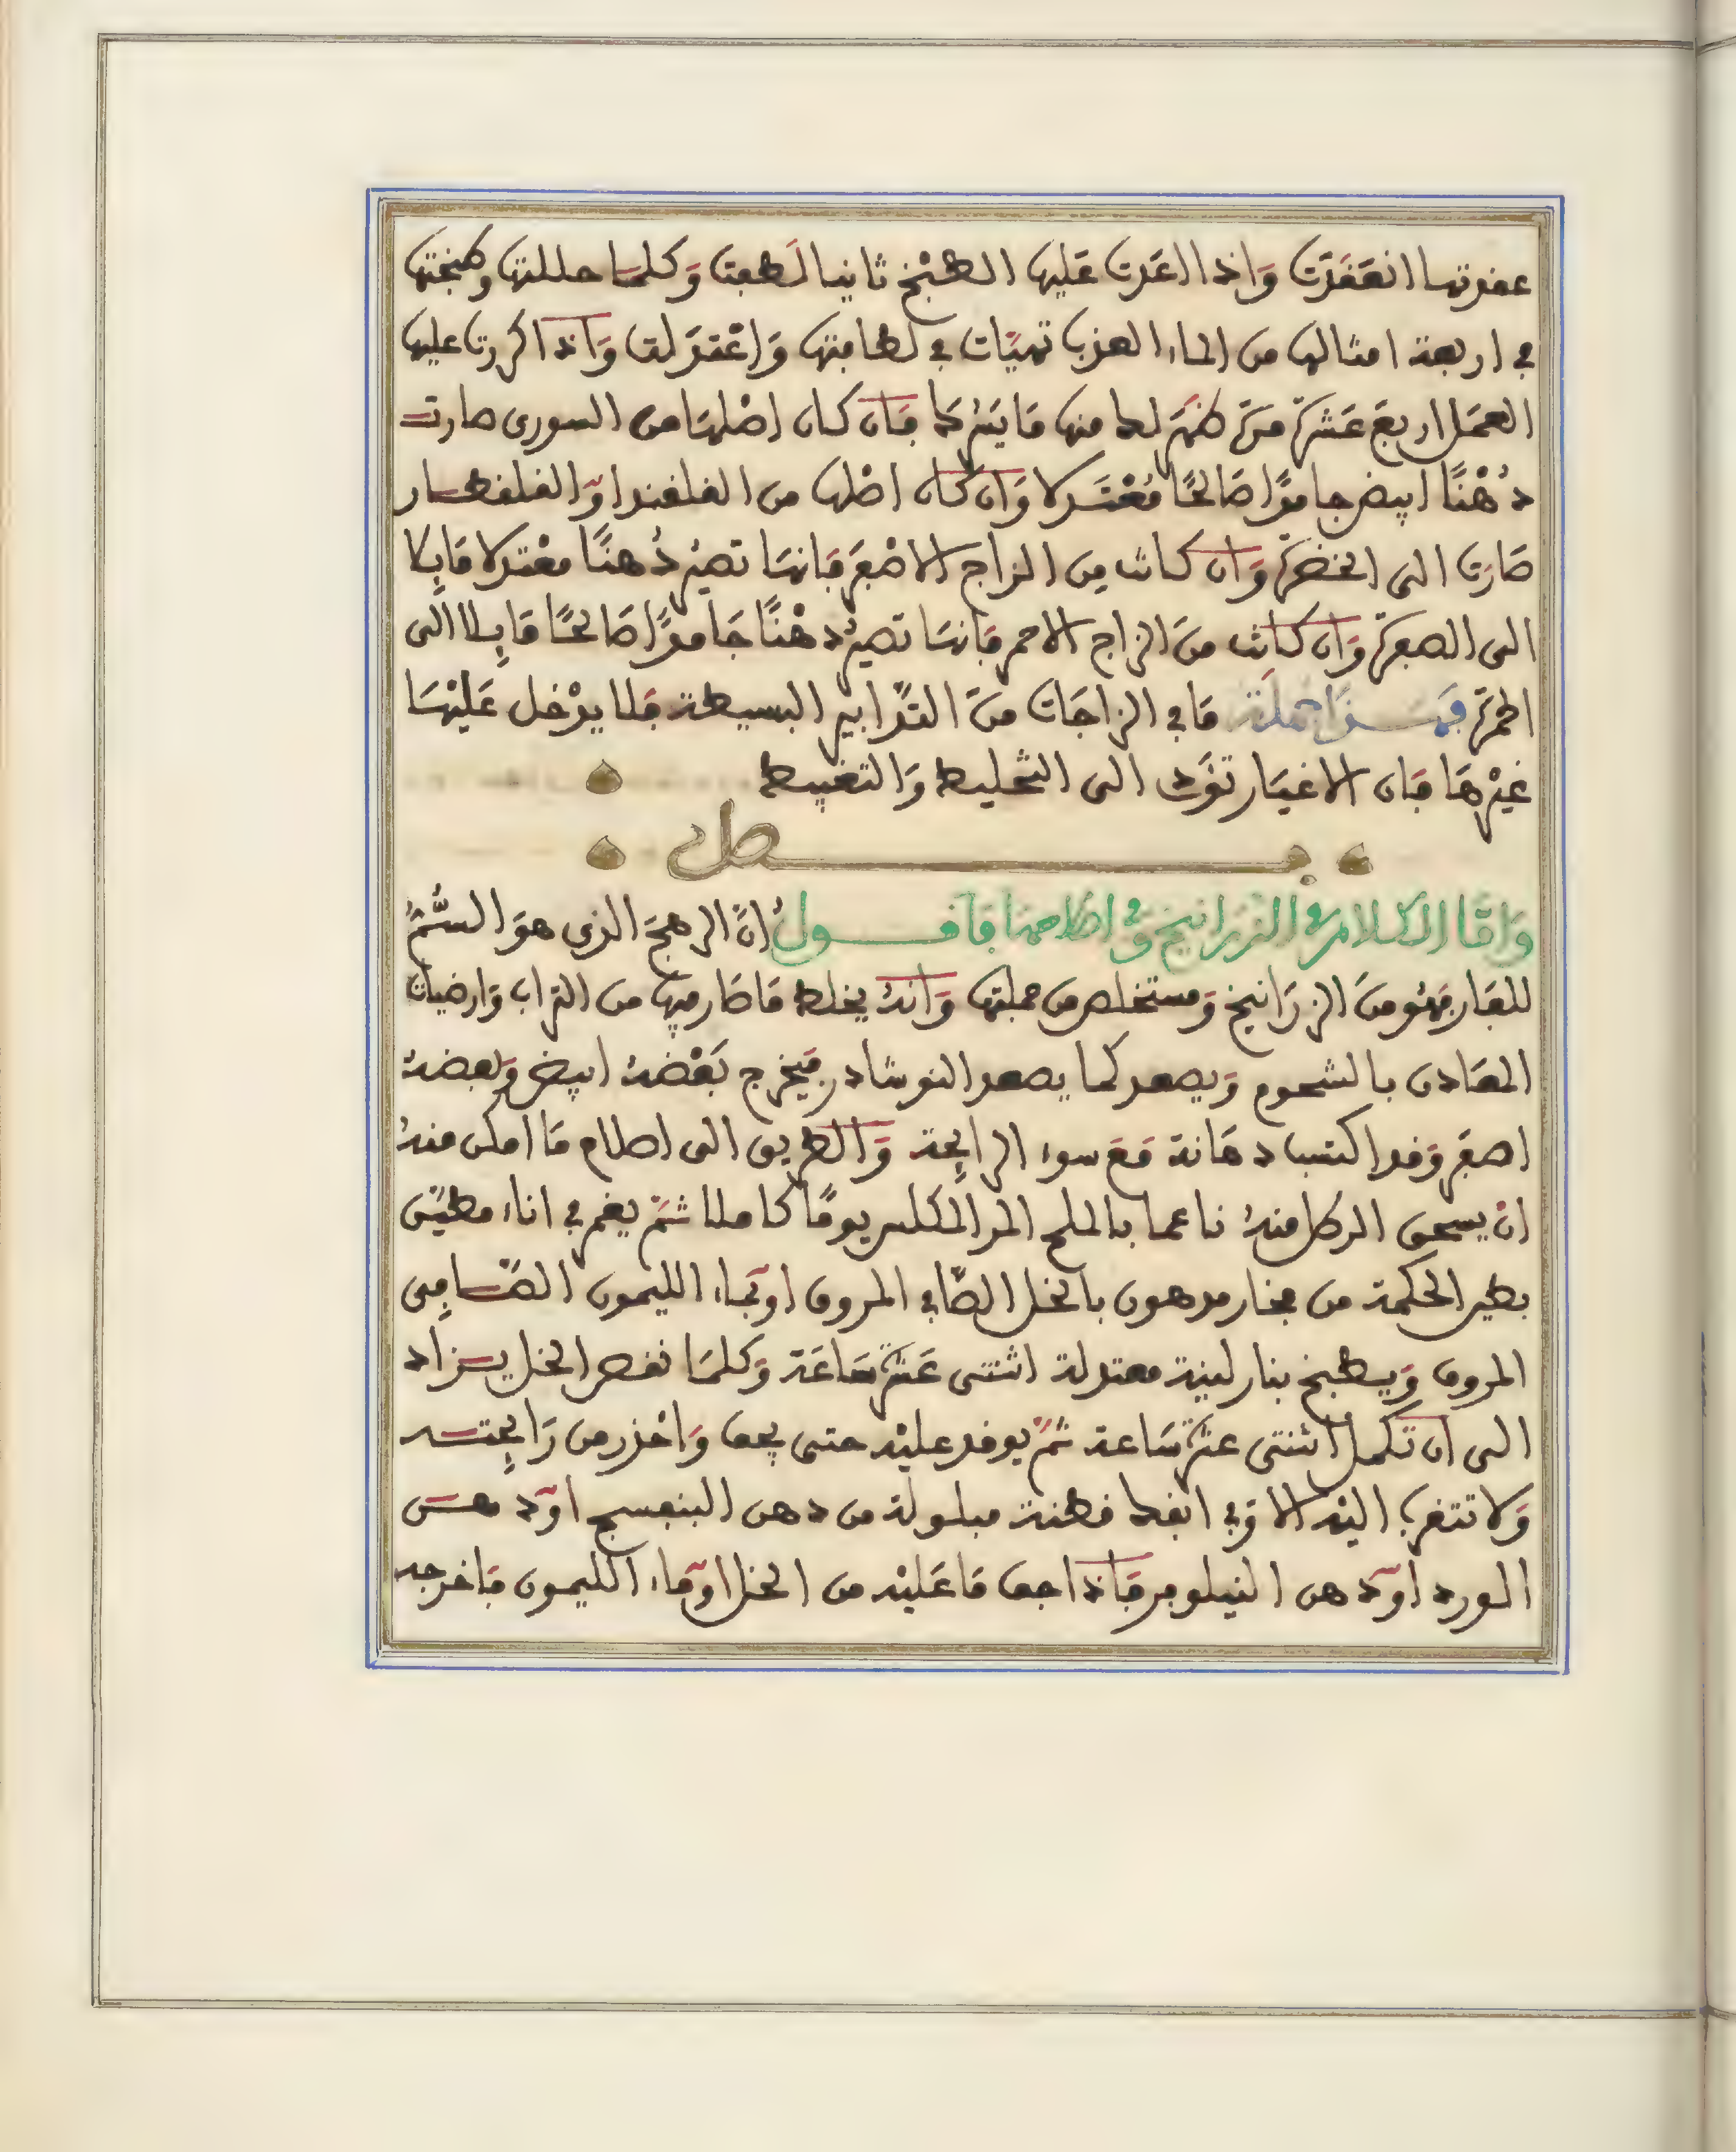 عقدتها انعقدت واذا اعدت عليها الطبخ ثانيا لطفت وكلما حللتها وطبختها
في اربعة امثالها من الماء العذب تهيات في لطافتها واعتدلت واذا كررت عليها
العمل اربع عشرة مرة ظهر لك منها ما يسرك فان كان اصلها من السورى صارت
دُهْنًا ابيض جامدًا صَالحًا مُعْتَدلا وان كان اصلها من القلقند او القلقطار
صارت الى الخضرة وان كانت من الزاج الاصفر فانها تصير دُهنًا معْتدلا مَايِلا
الى الصفرة وان كانت من الزاج الاحمر فانها تصير دهْنًا جَامدًا صَالحًا مَايلا الى
الحمرة فهذا جملة ما في الزاجات من التدابير البسيطة فلا يدْخل عَليْها
غيْرها فان الاغيار تؤد الى التخليط والتغبيط
فصل
واما الكلام في الزرانيخ وفي اصلاحها فاقول ان الرهج الذى هو السُّمُّ
للفار فهو من الزرانيخ ومستخلص من جملتها وانه يخلط ما طار فيها من التراب وارضيات
المعادن بالشحوم ويصعد كما يصعد النوشادر فيخرج بعْضه ابيض وبعضه
اصفر وقد اكتسب دهانة مع سوء الرايحة والطريق الى اصلاح ما امكن منه
ان يسحق الرطل منه ناعما بالملح المر المكلس يومًا كاملا ثم يغمر في اناء مطين
بطين الحكمة من فخار مدهون بالخل الصافي المروق او بماء الليمون الصافى
المروق ويطبخ بنار لينة معتدلة اثنتى عشرة ساعة وكلما نقص الخل يزاد
الى ان تكمل اثنتى عشرة ساعة ثم يوقد عليْه حتى يجف واحْذر من رايحته
ولا تتقرب اليْه الا وفي انفك قطنة مبلولة من دهن البنفسج او دهن
الورد او دهن النيلوفر فاذا جف ما عليْه من الخل او ماء الليمون فاخرجه